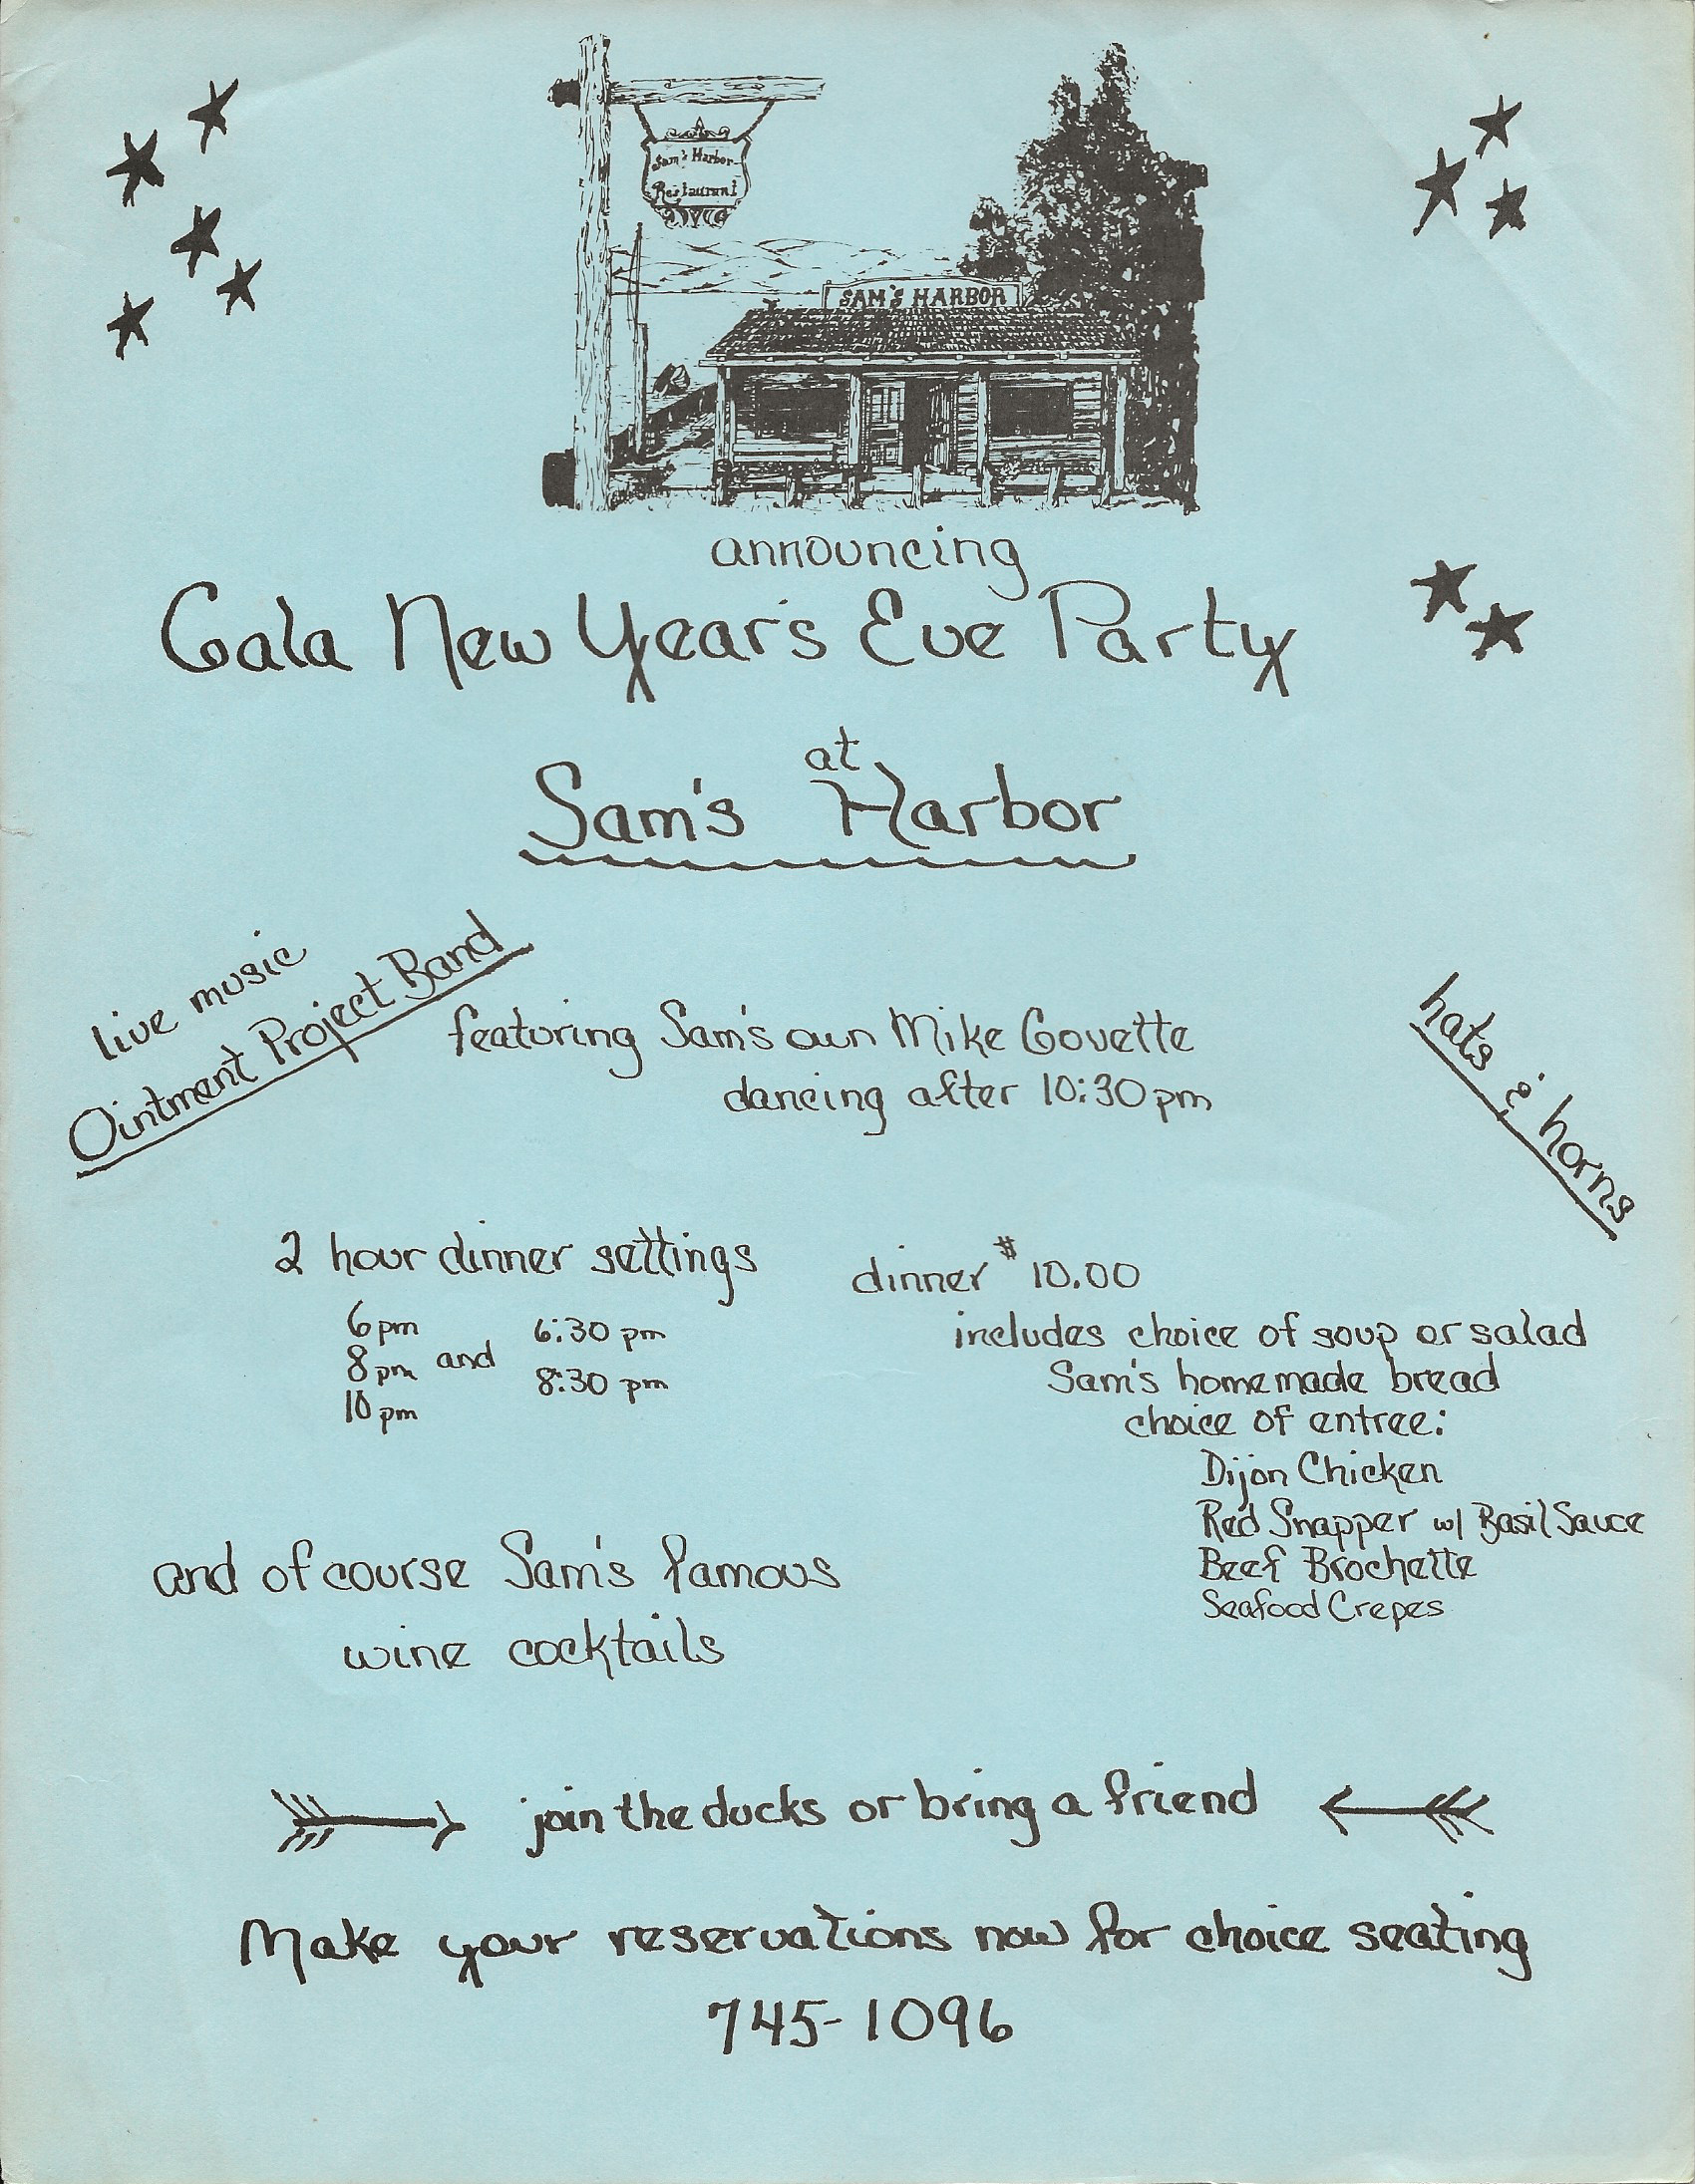 Sam's Harbor
Restaurant
SAM'S HARBOR
announcing
Gala New Year's Eve Party
at
Sam's Harbor
live music
Ointment Project Band
featuring Sam's own Mike Govette
dancing after 10:30 pm
hats & horns
2 hour dinner settings
6 pm
8 pm and
10 pm
6:30 pm
8:30 pm
dinner $10.00
includes choice of soup or salad
Sam's homemade bread
choice of entree:
Dijon Chicken
Red Snapper w/ Basil Sauce
Beef Brochette
Seafood Crepes
and of course Sam's famous
wine cocktails
join the ducks or bring a friend
Make your reservations now for choice seating
745-1096